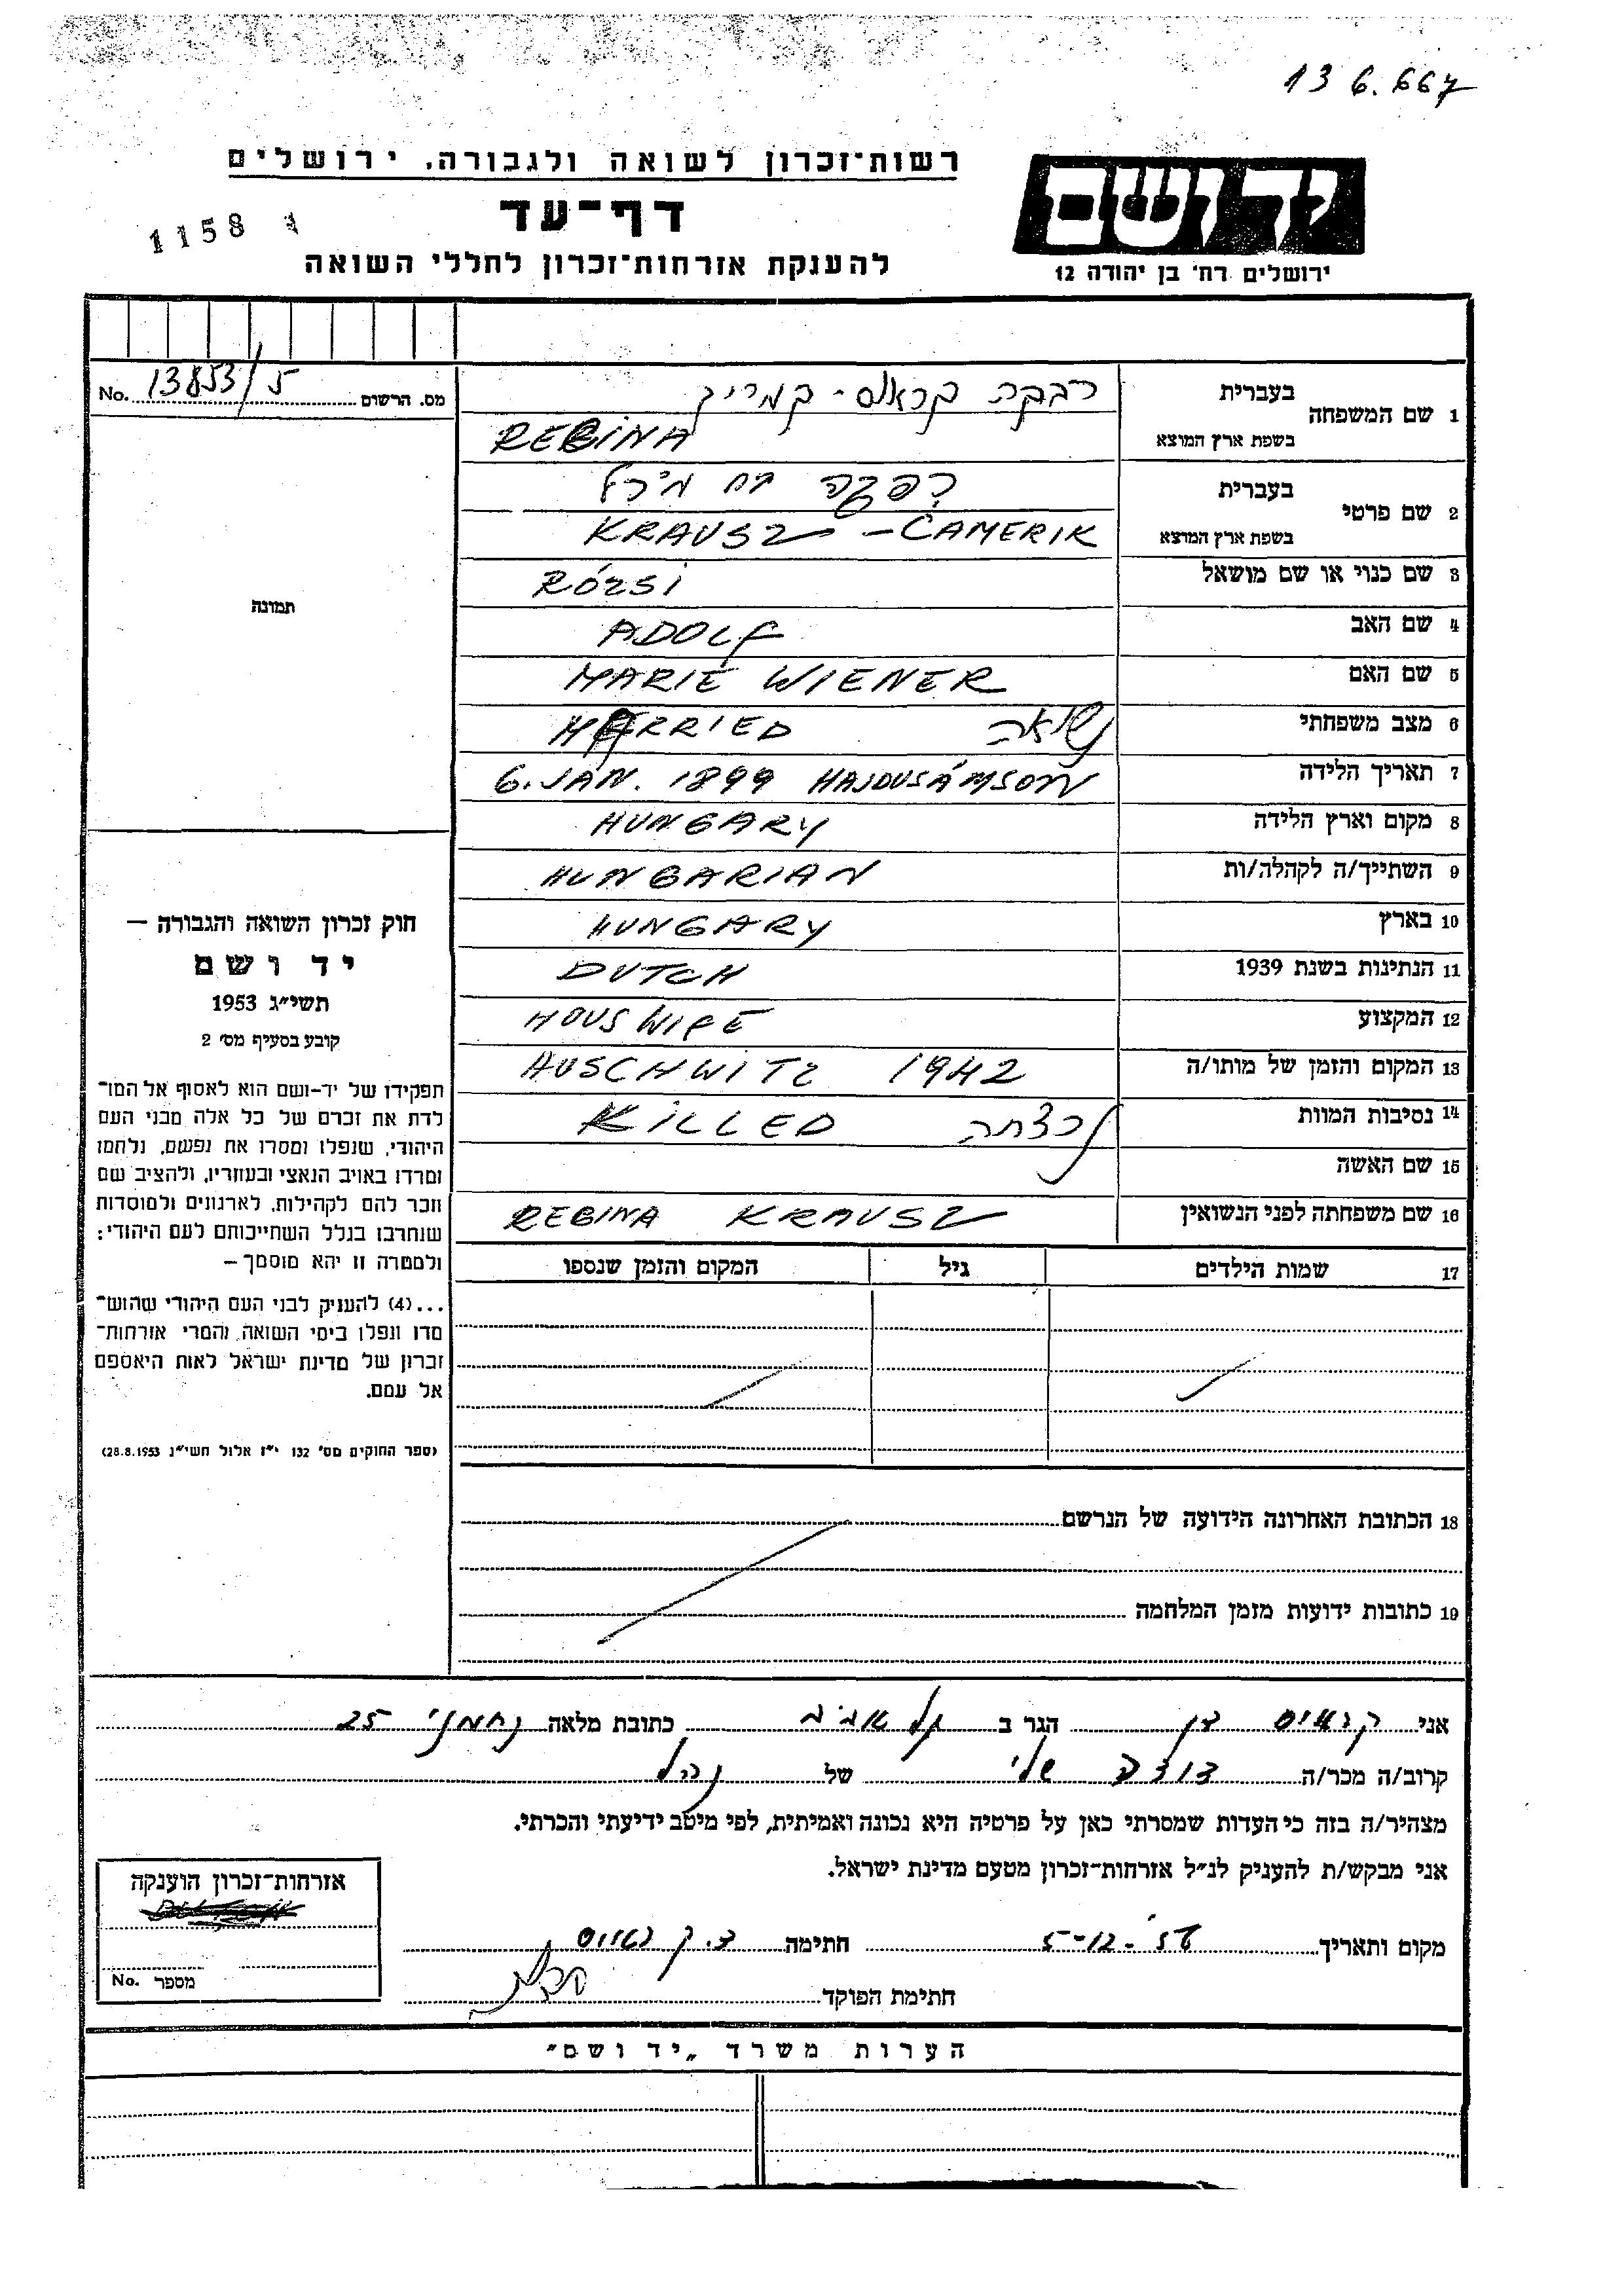 13 6.667
רשות־זכרון לשואה ולגבורה, ירושלים
יד ושם
דף־עד
1158
להענקת אזרחות־זכרון לחללי השואה
ירושלים רח' בן יהודה 12
מס. הרשום 13853/5 No.
1 שם המשפחה בעברית רבקה קראוס - קמריק
בשפת ארץ המוצא REGINA
2 שם פרטי בעברית רבקה בת
בשפת ארץ המוצא KRAUSZ - CAMERIK
3 שם כנוי או שם מושאל RÓZSI
תמונה
4 שם האב ADOLF
5 שם האם MARIE WIENER
6 מצב משפחתי נשואה MARRIED
7 תאריך הלידה 6. JAN. 1899 HAJDUSÁMSON
8 מקום וארץ הלידה HUNGARY
9 השתייך/ה לקהלה/ות HUNGARIAN
10 בארץ HUNGARY
11 הנתינות בשנת 1939 DUTCH
12 המקצוע HOUSWIFE
13 המקום והזמן של מותו/ה AUSCHWITZ 1942
14 נסיבות המוות נרצחה KILLED
15 שם האשה
16 שם משפחתה לפני הנשואין REGINA KRAUSZ
17 שמות הילדים גיל המקום והזמן שנספו
חוק זכרון השואה והגבורה —
יד ושם
תשי"ג 1953
קובע בסעיף מס' 2
תפקידו של יד-ושם הוא לאסוף אל המו־
לדת את זכרם של כל אלה מבני העם
היהודי, שנפלו ומסרו את נפשם, נלחמו
ומרדו באויב הנאצי ובעוזריו, ולהציב שם
וזכר להם לקהילות, לארגונים ולמוסדות
שנחרבו בגלל השתייכותם לעם היהודי;
ולמטרה זו יהא מוסמך —
...(4) להעניק לבני העם היהודי שהוש־
מדו ונפלו בימי השואה והמרי אזרחות־
זכרון של מדינת ישראל לאות היאספם
אל עמם.
(ספר החוקים מס' 132 י"ז אלול תשי"ג 28.8.1953)
18 הכתובת האחרונה הידועה של הנרשם
19 כתובות ידועות מזמן המלחמה
אני קראוס דן הגר ב תל אביב כתובת מלאה נחמני 25
קרוב/ה מכר/ה דודה שלי של
מצהיר/ה בזה כי העדות שמסרתי כאן על פרטיה היא נכונה ואמיתית, לפי מיטב ידיעתי והכרתי.
אני מבקש/ת להעניק לנ"ל אזרחות־זכרון מטעם מדינת ישראל.
מקום ותאריך 5-12- חתימה ד. קראוס
חתימת הפוקד
אזרחות־זכרון הוענקה
מספר No.
הערות משרד „יד ושם"